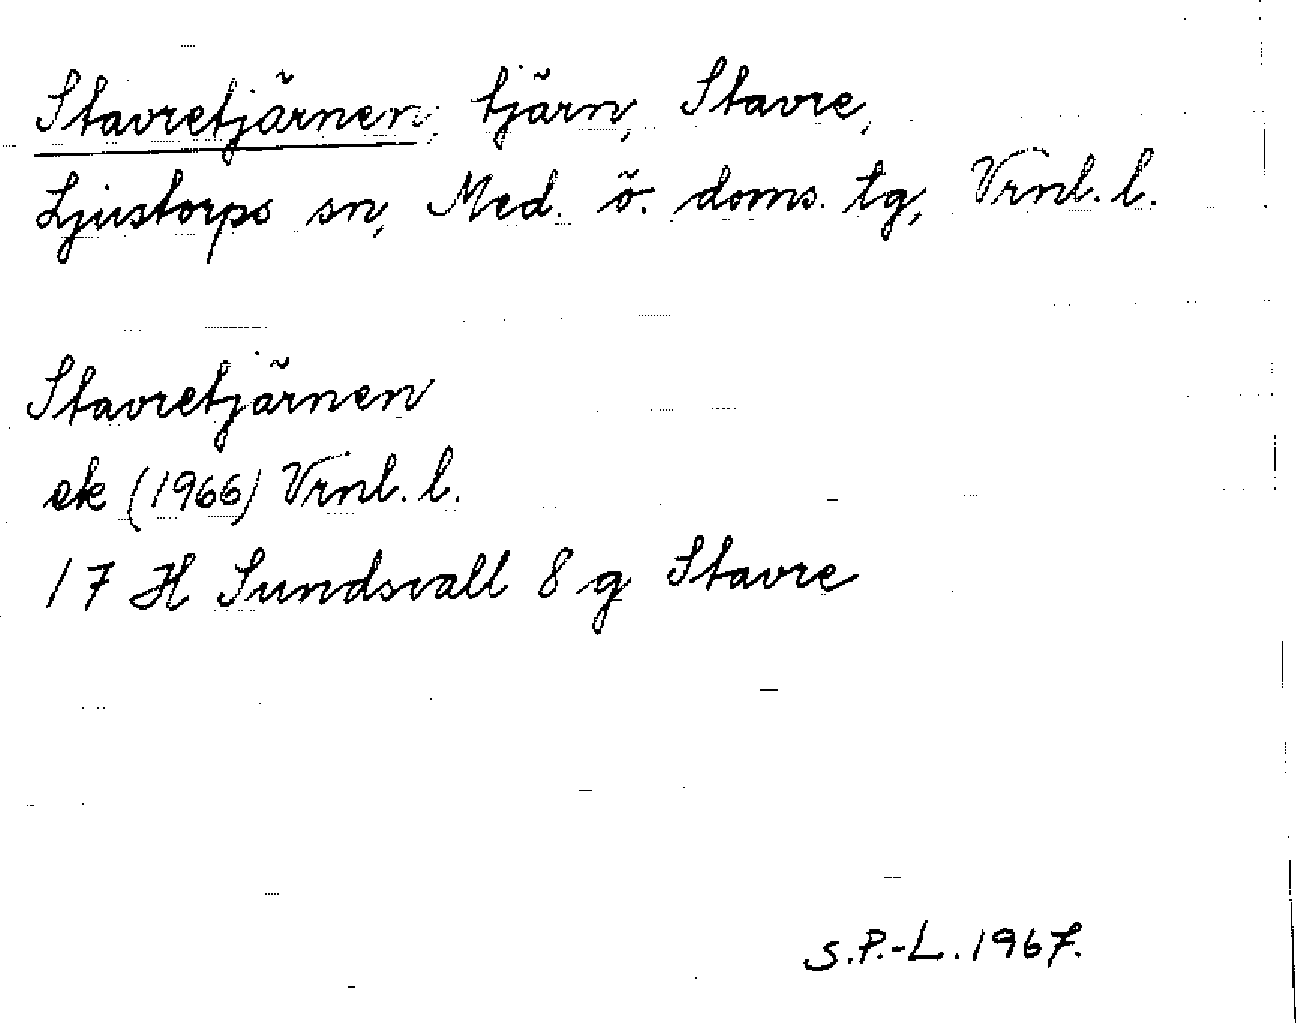 Stavretjärnen, tjärn, Stavre,
Ljustorps sn, Med. ö. doms. tg, Vrnl. l.
Stavretjärnen
ek (1966) Vrnl. l.
17 H Sundsvall 8 g Stavre
S.P.-L. 1967.